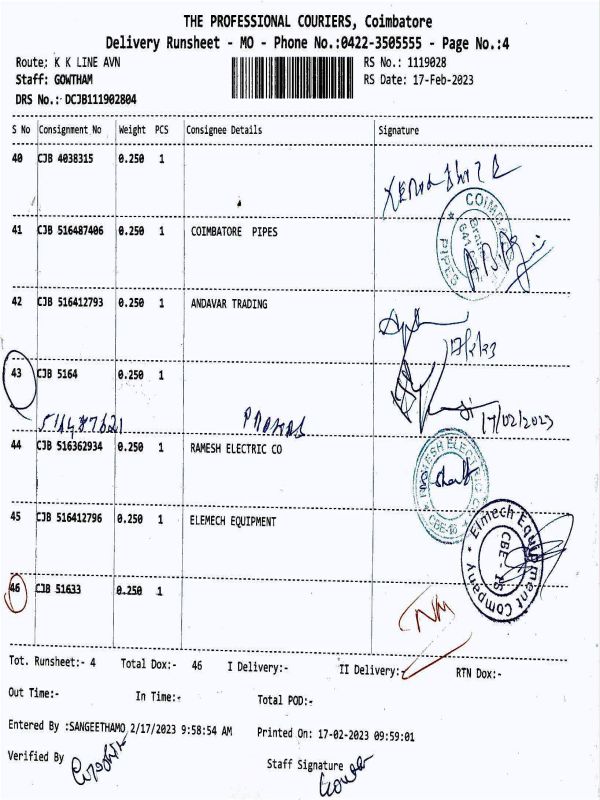 THE PROFESSIONAL COURIERS, Coimbatore
Delivery Runsheet - MO - Phone No.:0422-3505555 - Page No.:4
Route; K K LINE AVN
RS No.: 1119028
Staff: GOWTHAM
RS Date: 17-Feb-2023
DRS No.: DCJB111902804
S No Consignment No Weight PCS Consignee Details Signature
40 CJB 4038315 0.250 1
41 CJB 516487406 0.250 1 COIMBATORE PIPES
42 CJB 516412793 0.250 1 ANDAVAR TRADING
43 CJB 5164 0.250 1
17/02/2023
44 CJB 516362934 0.250 1 RAMESH ELECTRIC CO
45 CJB 516412796 0.250 1 ELEMECH EQUIPMENT
Elmech Equipment Company
46 CJB 51633 0.250 1
Tot. Runsheet:- 4 Total Dox:- 46 I Delivery:- II Delivery:- RTN Dox:-
Out Time:- In Time:- Total POD:-
Entered By :SANGEETHAMO 2/17/2023 9:58:54 AM Printed On: 17-02-2023 09:59:01
Verified By
Staff Signature